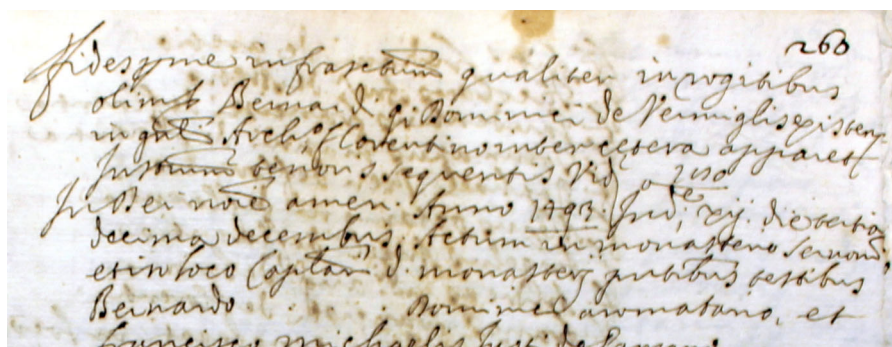 260
Fides p me infrascttum qualiter in rogitibus
olim S. Bernardi q. Dominici de Vermiglis existen
in gnli Archo. Florentino inter cetera apparet
Instrum tenoris sequentis Vidt
In Dei noie amen. Anno 1493. Inde. xij. die tertia
decima decembris. Actum in monasterio Servorum
et in loco Capitlari d. monasterj pntibus testibus
Bernardo Dominici aromatario, et
francisco michaelis